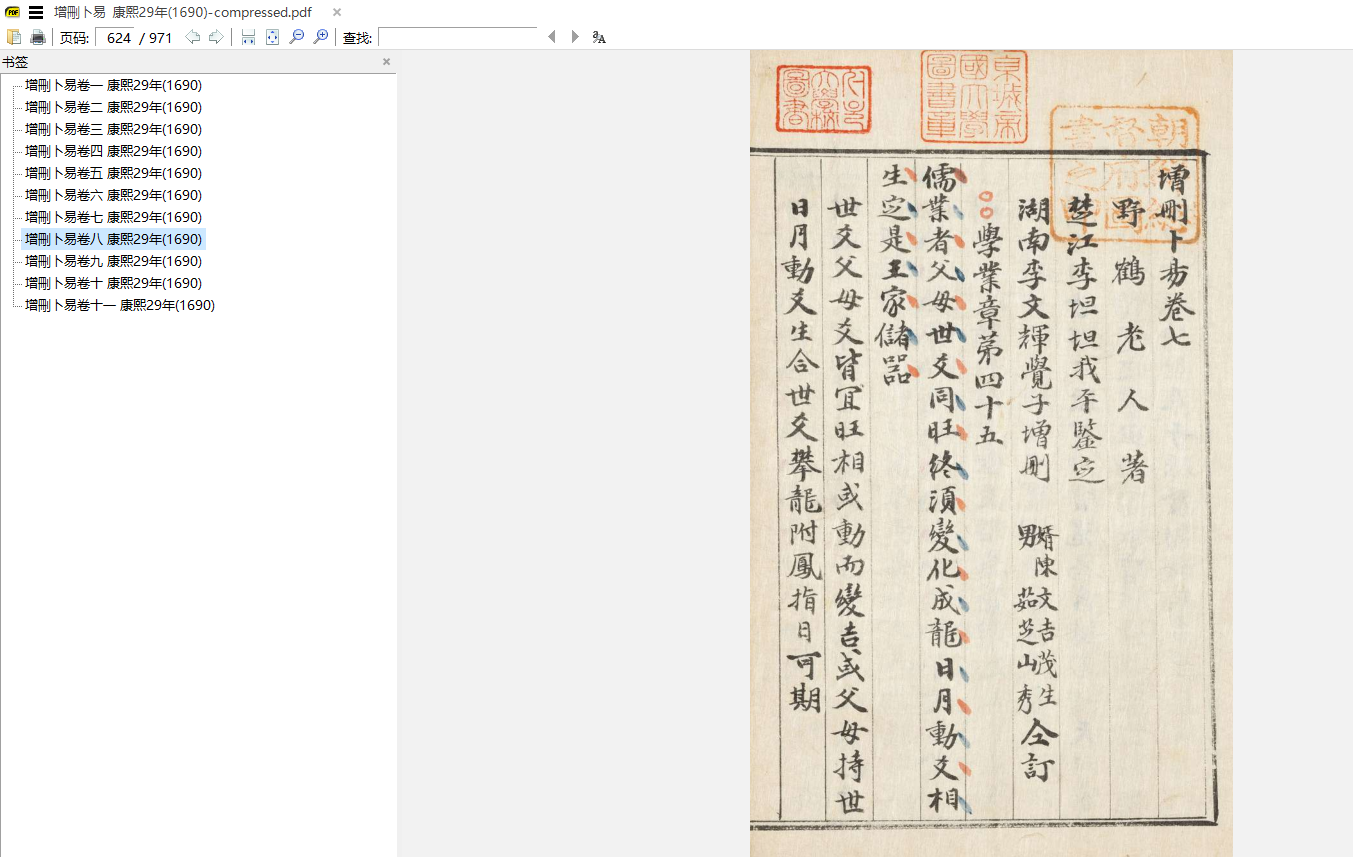 增刪卜易 康熙29年(1690)-compressed.pdf
页码: 624 / 971
查找:
书签
增刪卜易卷一 康熙29年(1690)
增刪卜易卷二 康熙29年(1690)
增刪卜易卷三 康熙29年(1690)
增刪卜易卷四 康熙29年(1690)
增刪卜易卷五 康熙29年(1690)
增刪卜易卷六 康熙29年(1690)
增刪卜易卷七 康熙29年(1690)
增刪卜易卷八 康熙29年(1690)
增刪卜易卷九 康熙29年(1690)
增刪卜易卷十 康熙29年(1690)
增刪卜易卷十一 康熙29年(1690)
增刪卜易卷七
野鶴老人著
楚江李坦坦我平鑒定
湖南李文輝覺子增刪 婿陳文吉茂生 男茹芝山秀 仝訂
學業章第四十五
儒業者父母世爻同旺終須變化成龍日月動爻相
生定是王家儲器
世爻父母爻皆宜旺相或動而變吉或父母持世
日月動爻生合世爻攀龍附鳳指日可期
東城帝國大學圖書章
朝鮮總督府圖書之印